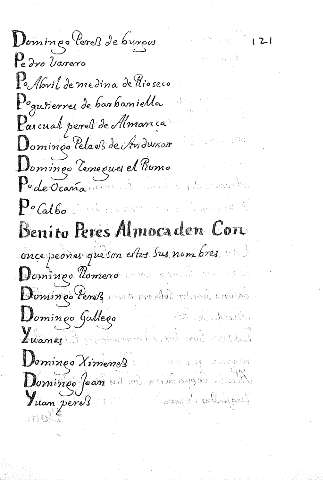 121
Domingo Peres de burgos
Pedro Varero
Po Abril de medina de Rioseco
Po gutierres de barbaniella
Pascual peres de Almança
Domingo Pelaes de Anduxar
Domingo el Romo
Po de Ocaña
Po Calbo
Benito Peres Almocaden Con
once peones que son estos sus nombres
Domingo Romero
Domingo Peres
Domingo Gallego
Yuanes
Domingo Ximenes
Domingo Joan
Yuan peres